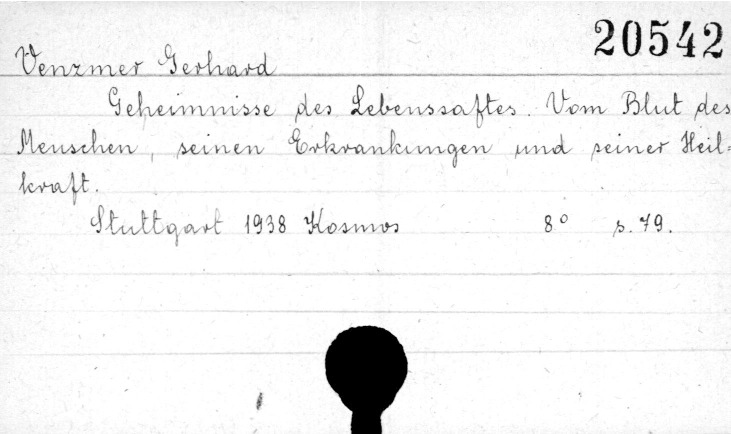 20542
Venzmer Gerhard
Geheimnisse des Lebenssaftes. Vom Blut des
Menschen, seinen Erkrankungen und seiner Heil=
kraft.
Stuttgart 1938 Kosmos 8° s. 79.